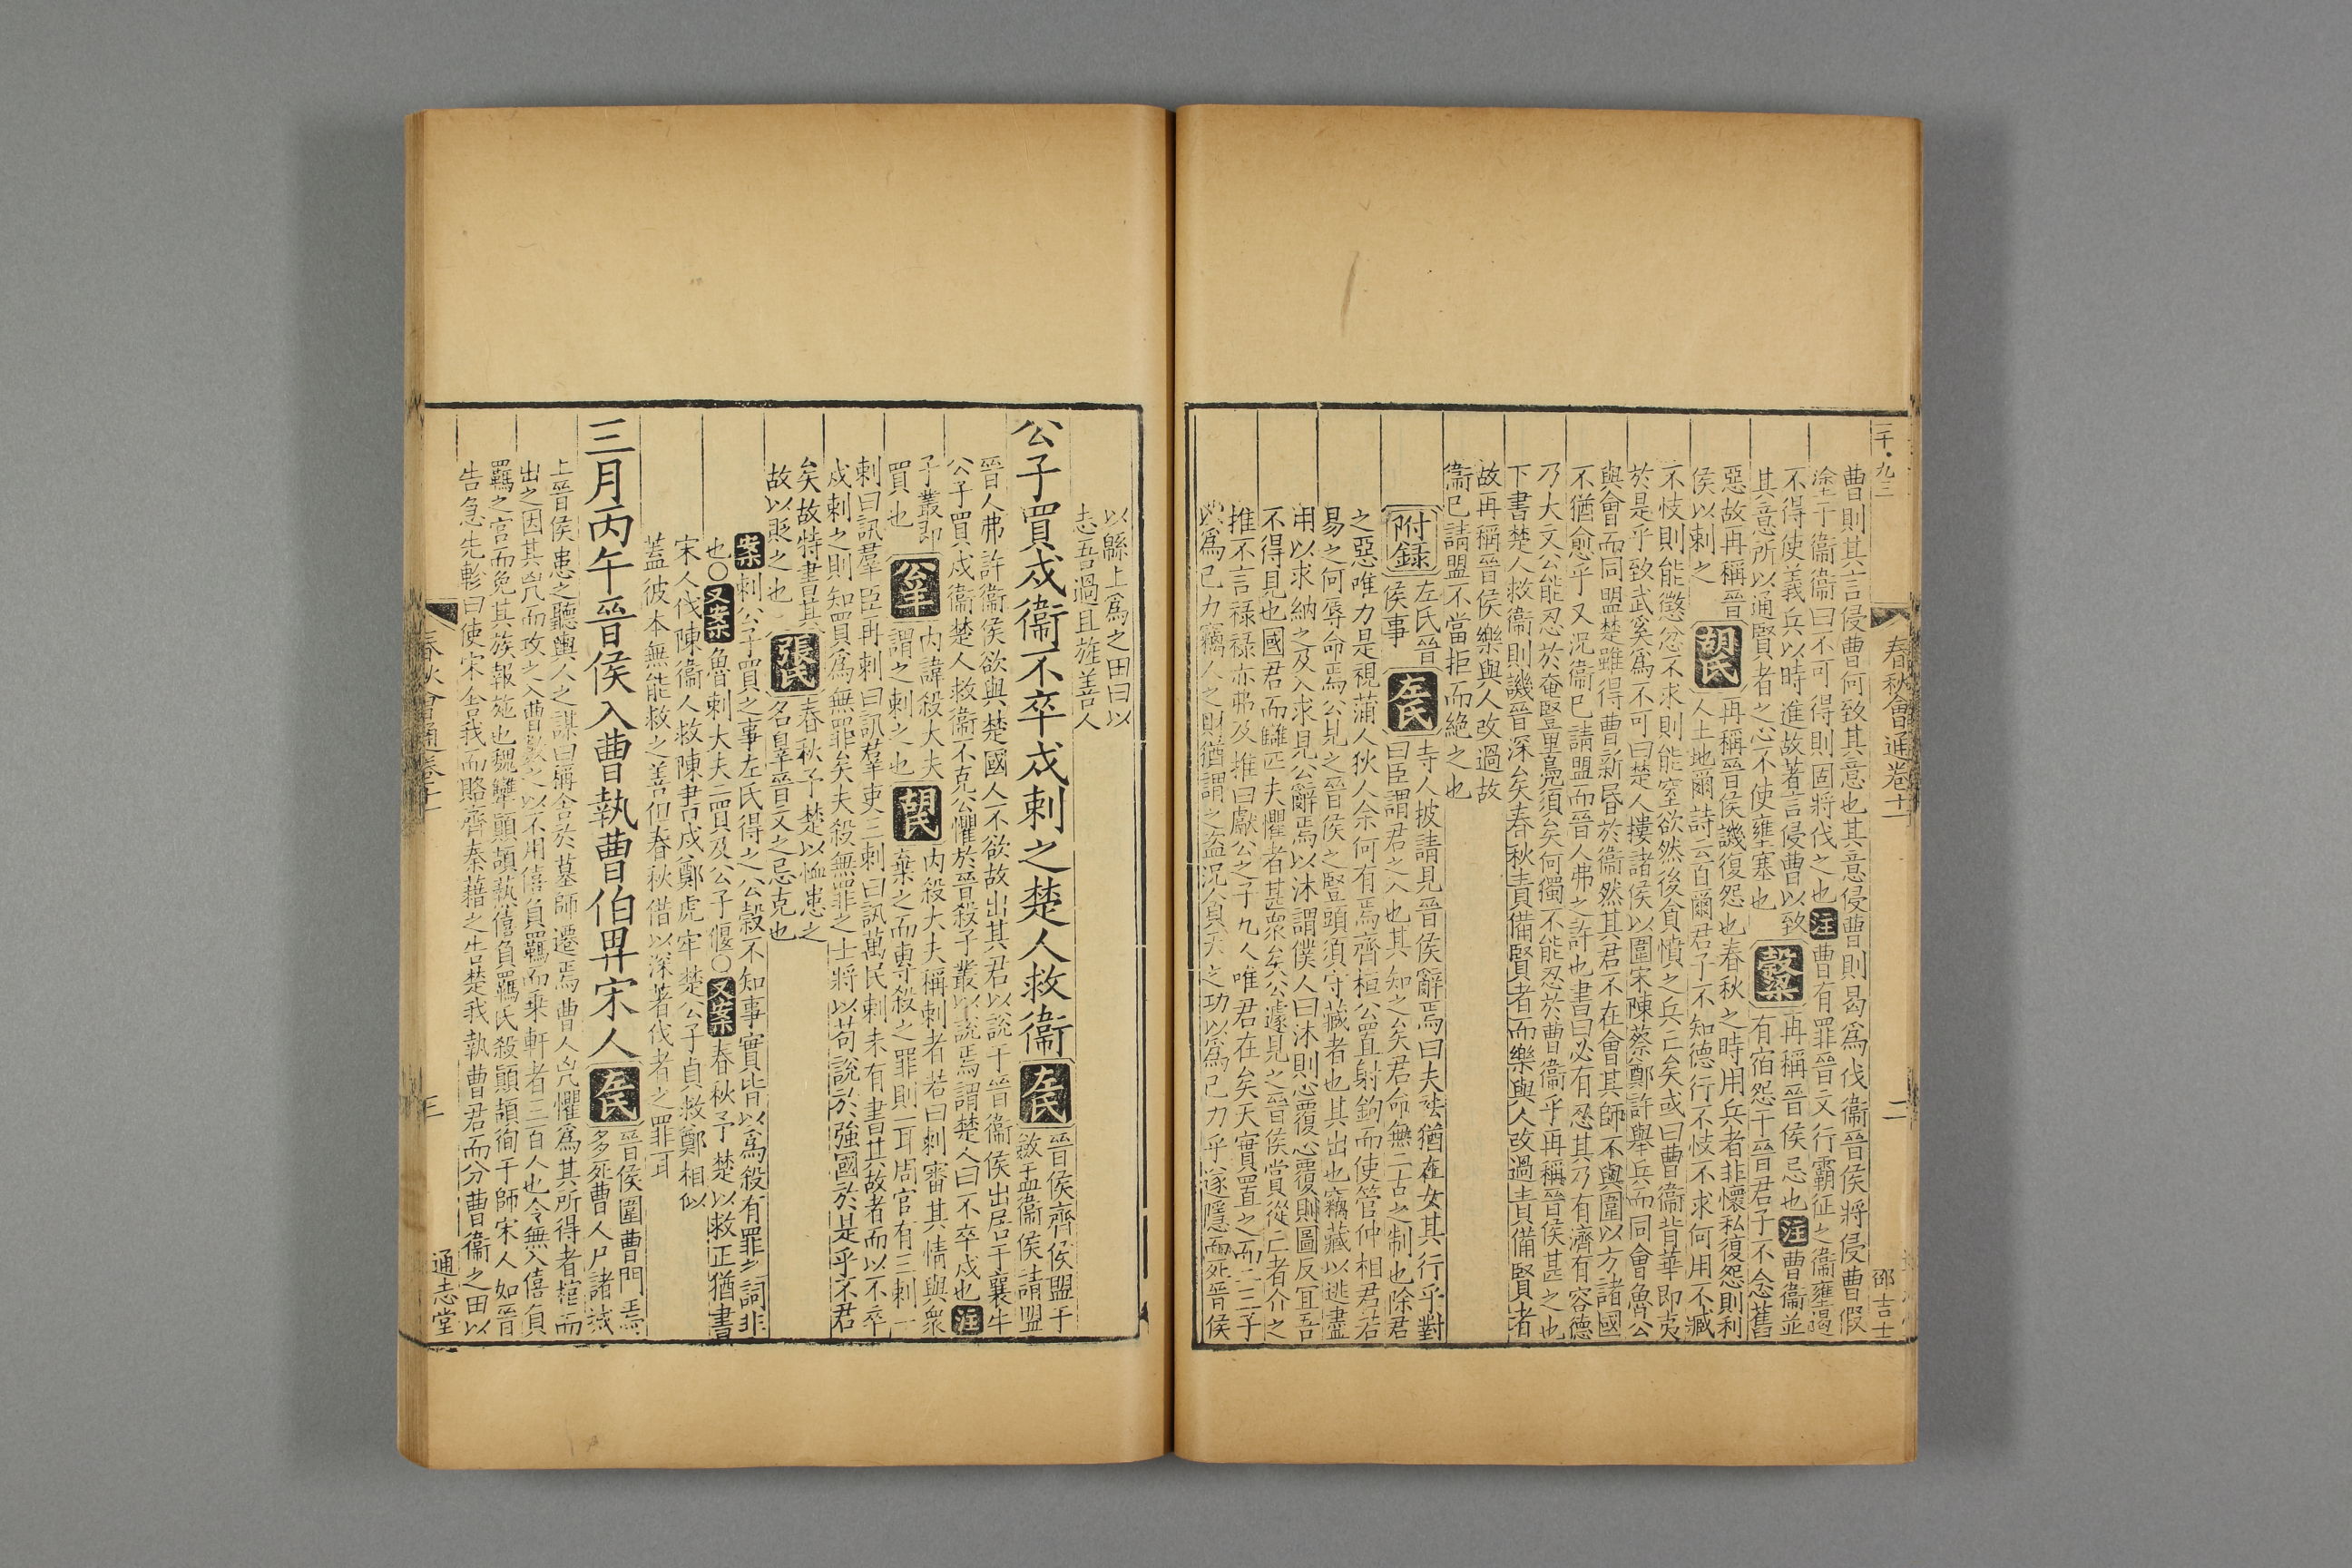 一千·九三
春秋會通卷十一
二
邵吉士
曹則其言侵曹何致其意也其意侵曹則曷為伐衞晉侯將侵曹假
塗于衞衞曰不可得則固將伐之也注曹有罪晉文行霸征之衞壅遏
不得使義兵以時進故著言侵曹以致穀梁再稱晉侯忌也注曹衞並
其意所以通賢者之心不使壅塞也有宿怨于晉君子不念舊
惡故再稱晉胡氏再稱晉侯譏復怨也春秋之時用兵者非懷私復怨則利
侯以刺之人土地爾詩云百爾君子不知德行不忮不求何用不臧
不忮則能懲忿不求則能窒欲然後貪憤之兵亡矣或曰曹衞背華即夷
於是乎致武奚為不可曰楚人摟諸侯以圍宋陳蔡鄭許舉兵而同會魯公
與會而同盟楚雖得曹新昏於衞然其君不在會其師不與圍以方諸國
不猶愈乎又況衞已請盟而晉人弗之許也書曰必有忍其乃有濟有容德
乃大文公能忍於奄豎里鳧須矣何獨不能忍於曹衞乎再稱晉侯甚之也
下書楚人救衞則譏晉深矣春秋責備賢者而樂與人改過責備賢者
故再稱晉侯樂與人改過故
衞已請盟不當拒而絶之也
附録左氏晉侯事左氏寺人披請見晉侯辭焉曰夫袪猶在女其行乎對
曰臣謂君之入也其知之矣君命無二古之制也除君
之惡唯力是視蒲人狄人余何有焉齊桓公置射鉤而使管仲相君若
易之何辱命焉公見之晉侯之豎頭須守藏者也其出也竊藏以逃盡
用以求納之及入求見公辭焉以沐謂僕人曰沐則心覆心覆則圖反宜吾
不得見也國君而讎匹夫懼者甚衆矣公遽見之晉侯賞從亡者介之
推不言禄禄亦弗及推曰獻公之子九人唯君在矣天實置之而二三子
以為己力竊人之財猶謂之盗況貪天之功以為己力乎遂隱而死晉侯
以緜上為之田曰以
志吾過且旌善人
公子買戍衞不卒戍刺之楚人救衞左氏晉侯齊侯盟于
斂盂衞侯請盟
晉人弗許衞侯欲與楚國人不欲故出其君以說于晉衞侯出居于襄牛
公子買戍衞楚人救衞不克公懼於晉殺子叢以說焉謂楚人曰不卒戍也注
子叢即買也公羊内諱殺大夫謂之刺之也胡氏内殺大夫稱刺者若曰刺審其情與衆
棄之而專殺之罪則一耳周官有三刺一
刺曰訊羣臣再刺曰訊羣吏三刺曰訊萬民刺未有書其故者而以不卒
戍刺之則知買為無罪矣夫殺無罪之士將以苟說於強國於是乎不君
矣故特書其故以貶之也張氏春秋予楚以恤患之
名辠晉文之忌克也
案刺公子買之事左氏得之公穀不知事實皆以為殺有罪之詞非
也〇又案魯刺大夫二買及公子偃〇又案春秋予楚以救正猶書
宋人伐陳衞人救陳書戍鄭虎牢楚公子貞救鄭相似
蓋彼本無能救之善但春秋借以深著伐者之罪耳
三月丙午晉侯入曹執曹伯畀宋人左氏晉侯圍曹門焉
多死曹人尸諸城
上晉侯患之聽輿人之謀曰稱舍於墓師遷焉曹人兇懼為其所得者棺而
出之因其兇而攻之入曹數之以不用僖負羈而乘軒者三百人也令無入僖負
羈之宫而免其族報施也魏犫顛頡爇僖負羈氏殺顛頡徇于師宋人如晉
告急先軫曰使宋舍我而賂齊秦藉之告楚我執曹君而分曹衞之田以
春秋會通卷十一
三
通志堂